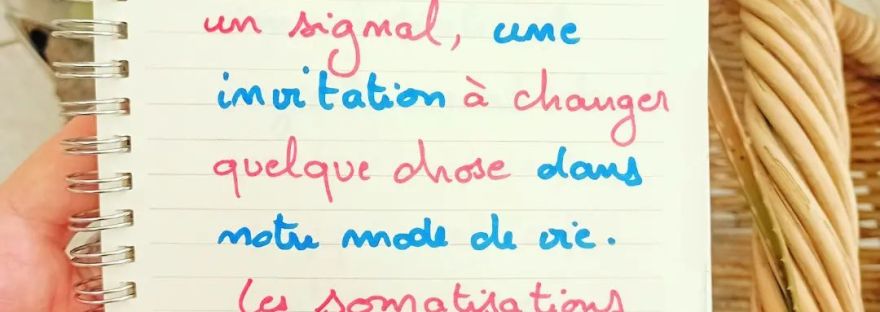 un signal, une
invitation à changer
quelque chose dans
notre mode de vie.
les somatisations